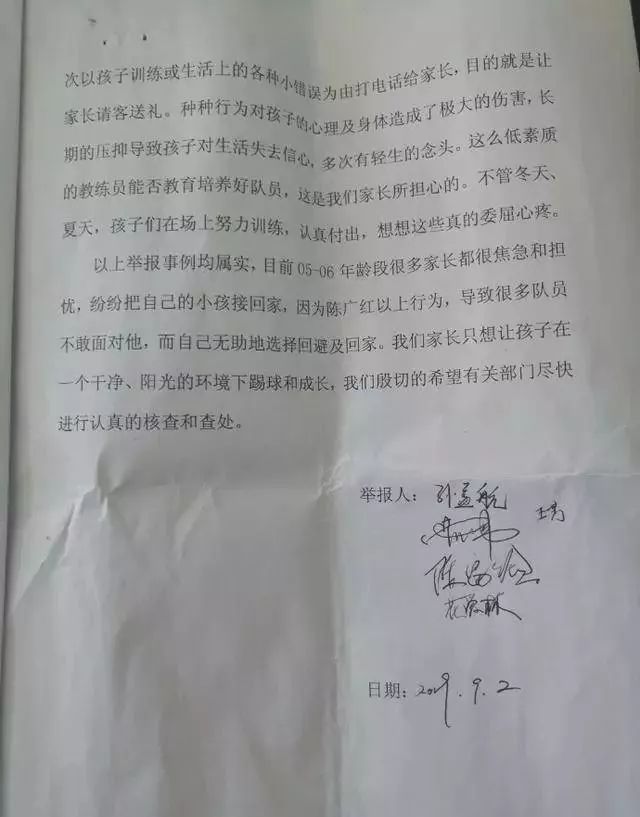 次以孩子训练或生活上的各种小错误为由打电话给家长，目的就是让
家长请客送礼。种种行为对孩子的心理及身体造成了极大的伤害，长
期的压抑导致孩子对生活失去信心，多次有轻生的念头。这么低素质
的教练员能否教育培养好队员，这是我们家长所担心的。不管冬天、
夏天，孩子们在场上努力训练，认真付出，想想这些真的委屈心疼。
以上举报事例均属实，目前 05-06 年龄段很多家长都很焦急和担
忧，纷纷把自己的小孩接回家，因为陈广红以上行为，导致很多队员
不敢面对他，而自己无助地选择回避及回家。我们家长只想让孩子在
一个干净、阳光的环境下踢球和成长，我们殷切的希望有关部门尽快
进行认真的核查和查处。
举报人：
日期：2019.9.2